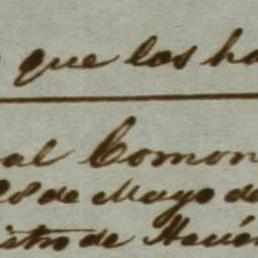 que los ha
al Comon
28 de Mayo de
istro de Hacien